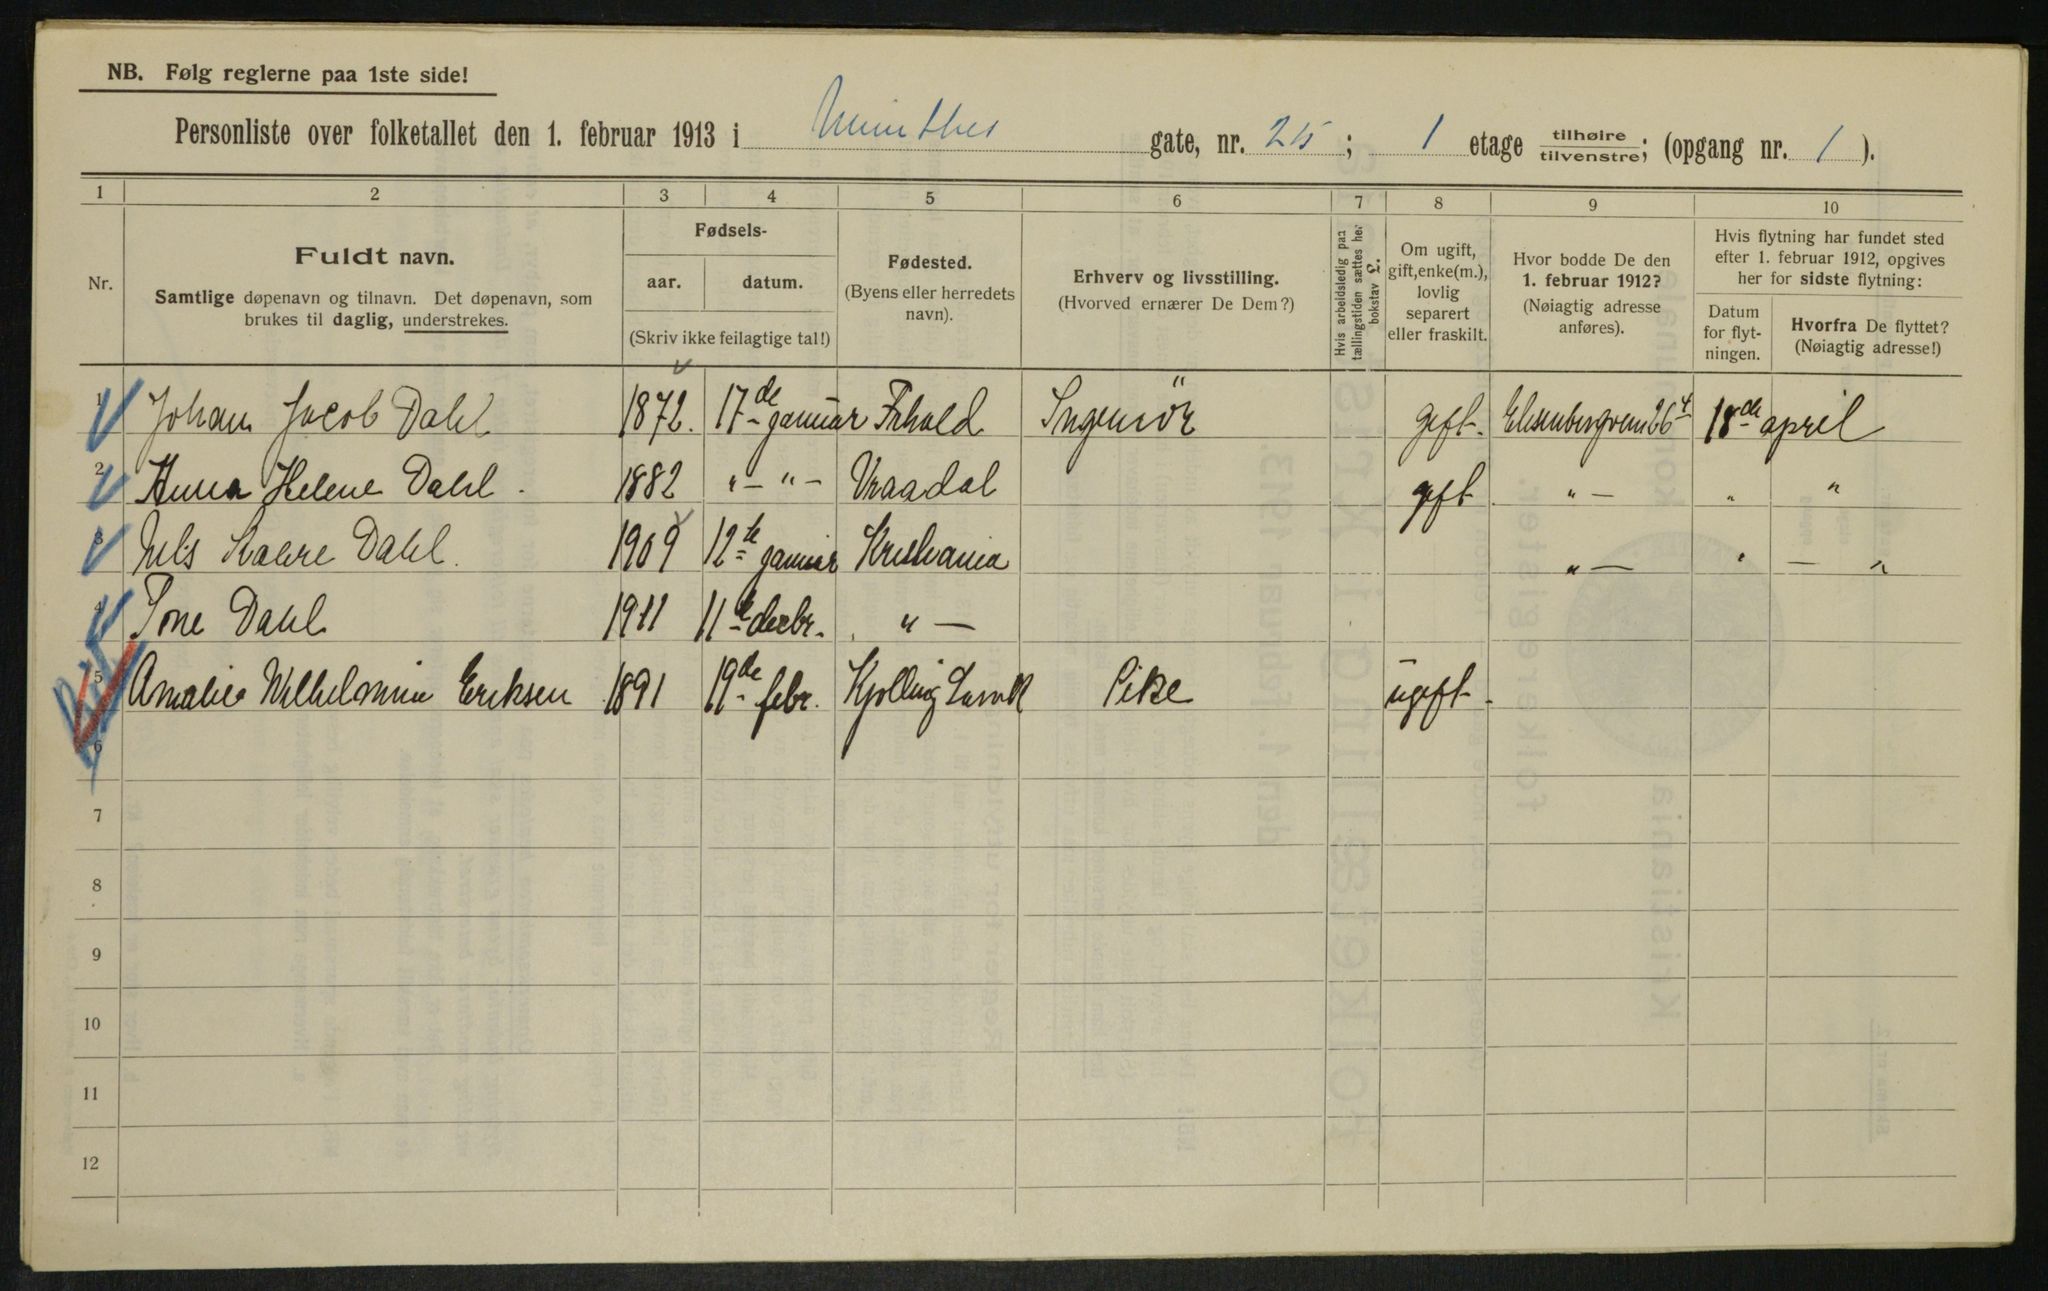 NB. Følg reglerne paa 1ste side!
Personliste over folketallet den 1. februar 1913 i Munthes gate, nr. 25 ; 1 etage tilhøire / tilvenstre; (opgang nr. 1 ).
1 2 3 4 5 6 7 8 9 10
Nr.
Fuldt navn.
Samtlige døpenavn og tilnavn. Det døpenavn, som
brukes til daglig, understrekes.
Fødsels-
aar. datum.
(Skriv ikke feilagtige tal!)
Fødested.
(Byens eller herredets
navn).
Erhverv og livsstilling.
(Hvorved ernærer De Dem?)
Hvis arbeidsledig paa
tællingstiden sættes her
bokstav L.
Om ugift,
gift, enke(m.),
lovlig
separert
eller fraskilt.
Hvor bodde De den
1. februar 1912?
(Nøiagtig adresse
anføres).
Hvis flytning har fundet sted
efter 1. februar 1912, opgives
her for sidste flytning:
Datum
for flyt-
ningen.
Hvorfra De flyttet?
(Nøiagtig adresse!)
1 Johan Jacob Dahl 1872. 17de januar Ingeniör gift. 18de april
2 Anna Helene Dahl. 1882 " – " – Vraadal gift " — " "
3 Nils Kaare Dahl. 1909 12te januar Kristiania " — " — "
4 Tone Dahl 1911 11te decbr. " —
5 Amalie Wilhelmine Eriksen 1891 19de febr. Kjølling Larvik Pike ugift.
6
7
8
9
10
11
12